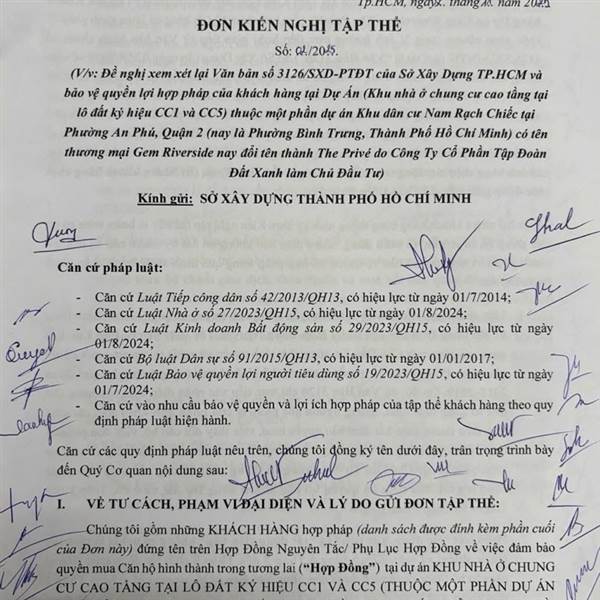 Tp.HCM, ngày. tháng 10. năm 2025
ĐƠN KIẾN NGHỊ TẬP THỂ
Số: 02/2025.
(V/v: Đề nghị xem xét lại Văn bản số 3126/SXD-PTĐT của Sở Xây Dựng TP.HCM và
bảo vệ quyền lợi hợp pháp của khách hàng tại Dự Án (Khu nhà ở chung cư cao tầng tại
lô đất ký hiệu CC1 và CC5) thuộc một phần dự án Khu dân cư Nam Rạch Chiếc tại
Phường An Phú, Quận 2 (nay là Phường Bình Trưng, Thành Phố Hồ Chí Minh) có tên
thương mại Gem Riverside nay đổi tên thành The Privé do Công Ty Cổ Phần Tập Đoàn
Đất Xanh làm Chủ Đầu Tư)
Kính gửi: SỞ XÂY DỰNG THÀNH PHỐ HỒ CHÍ MINH
Căn cứ pháp luật:
- Căn cứ Luật Tiếp công dân số 42/2013/QH13, có hiệu lực từ ngày 01/7/2014;
- Luật Nhà ở số 27/2023/QH15, có hiệu lực từ ngày 01/8/2024;
- Căn cứ Luật Kinh doanh Bất động sản số 29/2023/QH15, có hiệu lực từ ngày
01/8/2024;
- Căn cứ Bộ luật Dân sự số 91/2015/QH13, có hiệu lực từ ngày 01/01/2017;
- Căn cứ Luật Bảo vệ quyền lợi người tiêu dùng số 19/2023/QH15, có hiệu lực từ ngày
01/7/2024;
- Căn cứ vào nhu cầu bảo vệ quyền và lợi ích hợp pháp của tập thể khách hàng theo quy
định pháp luật hiện hành.
Căn cứ các quy định pháp luật nêu trên, chúng tôi đồng ký tên dưới đây, trân trọng trình bày
đến Quý Cơ quan nội dung sau:
I. VỀ TƯ CÁCH, PHẠM VI ĐẠI DIỆN VÀ LÝ DO GỬI ĐƠN TẬP THỂ:
Chúng tôi gồm những KHÁCH HÀNG hợp pháp (danh sách được đính kèm phần cuối
của Đơn này) đứng tên trên Hợp Đồng Nguyên Tắc/ Phụ Lục Hợp Đồng về việc đảm bảo
quyền mua Căn hộ hình thành trong tương lai (“Hợp Đồng”) tại dự án KHU NHÀ Ở CHUNG
CƯ CAO TẦNG TẠI LÔ ĐẤT KÝ HIỆU CC1 VÀ CC5 (THUỘC MỘT PHẦN DỰ ÁN